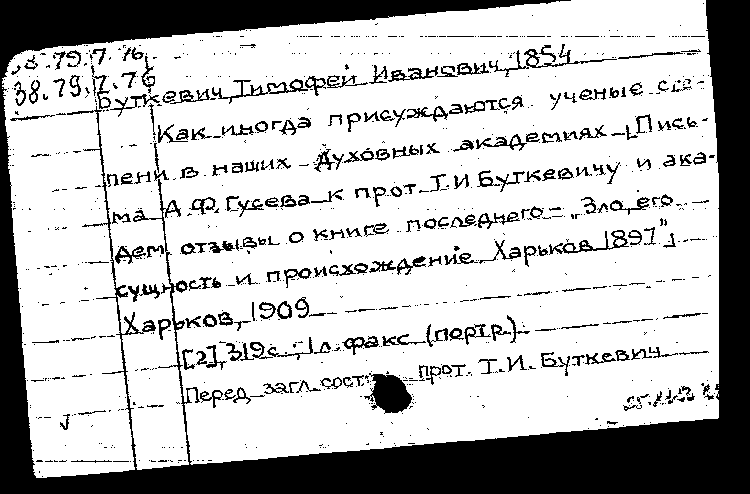 38.79.7.76
38.79.7.76
Буткевич, Тимофей Иванович, 1854
Как иногда присуждаются ученые сте-
пени в наших Духовных академиях. [Пись-
ма А.Ф. Гусева к прот. Т.И Буткевичу и ака-
дем. отзывы о книге последнего – „Зло, его
сущность и происхождение, Харьков, 1897"]
Харьков, 1909
[2], 319с., 1л. факс (портр.).
Перед загл. сост. прот. Т.И. Буткевич